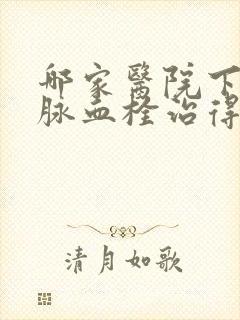 哪家醫院下
脉血栓治得
清月如歌